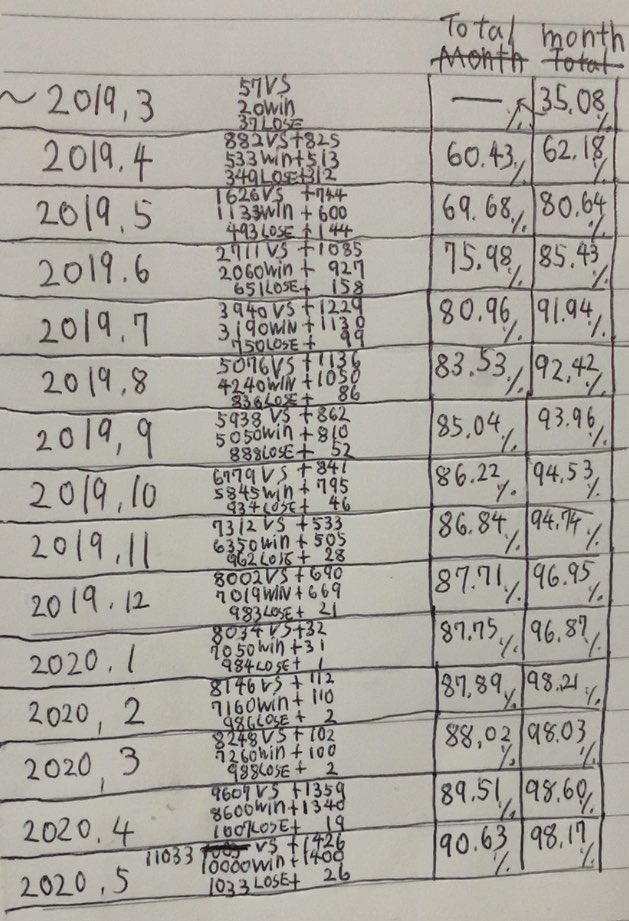 Total month
Month Total
~ 2019.3 57VS
20win
37LOSE — % 35.08%
2019.4 882VS+825
533win+513
349LOSE+312 60.43% 62.18%
2019.5 1626VS +744
1133win + 600
493LOSE + 144 69.68% 80.64%
2019.6 2711VS +1085
2060win + 927
651LOSE + 158 75.98% 85.43%
2019.7 3940VS +1229
3190WIN +1130
750LOSE + 99 80.96% 91.94%
2019.8 5076VS +1136
4240WIN +1050
836LOSE + 86 83.53% 92.42%
2019.9 5938 VS + 862
5050win + 810
888LOSE + 52 85.04% 93.96%
2019.10 6779VS + 841
5845win + 795
934LOSE + 46 86.22% 94.53%
2019.11 7312VS +533
6350win + 505
962LOSE + 28 86.84% 94.74%
2019.12 8002VS +690
7019WIN +669
983LOSE + 21 87.71% 96.95%
2020.1 8034VS+32
7050win+31
984LOSE + 1 87.75% 96.87%
2020.2 8146VS + 112
7160win + 110
986LOSE + 2 87.89% 98.21%
2020.3 8248VS + 102
7260win + 100
988LOSE + 2 88.02% 98.03%
2020.4 9607VS +1359
8600win+1340
1007LOSE+ 19 89.51% 98.60%
2020.5 11033 VS +1426
10000win+1400
1033LOSE+ 26 90.63% 98.17%